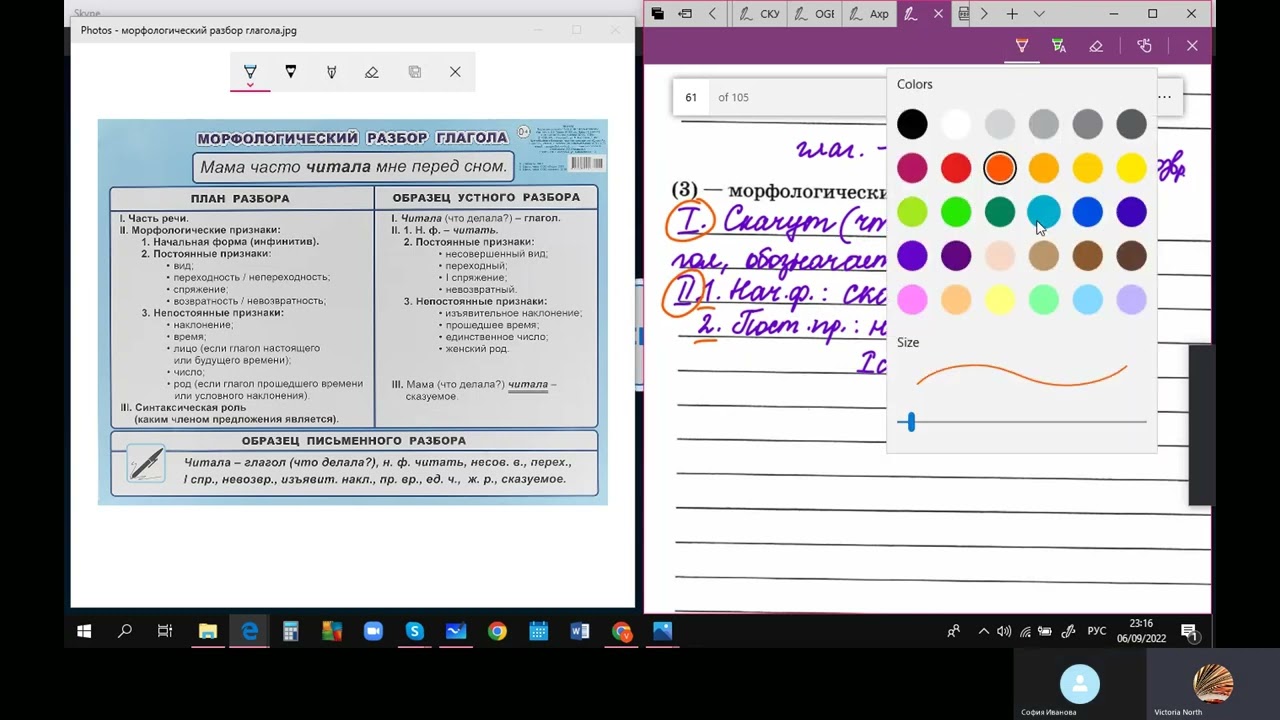 Skype
Photos - морфологический разбор глагола.jpg
МОРФОЛОГИЧЕСКИЙ РАЗБОР ГЛАГОЛА
0+
Мама часто читала мне перед сном.
ПЛАН РАЗБОРА
I. Часть речи.
II. Морфологические признаки:
1. Начальная форма (инфинитив).
2. Постоянные признаки:
• вид;
• переходность / непереходность;
• спряжение;
• возвратность / невозвратность;
3. Непостоянные признаки:
• наклонение;
• время;
• лицо (если глагол настоящего
или будущего времени);
• число;
• род (если глагол прошедшего времени
или условного наклонения).
III. Синтаксическая роль
(каким членом предложения является).
ОБРАЗЕЦ УСТНОГО РАЗБОРА
I. Читала (что делала?) – глагол.
II. 1. Н. ф. – читать.
2. Постоянные признаки:
• несовершенный вид;
• переходный;
• I спряжение;
• невозвратный.
3. Непостоянные признаки:
• изъявительное наклонение;
• прошедшее время;
• единственное число;
• женский род.
III. Мама (что делала?) читала –
сказуемое.
ОБРАЗЕЦ ПИСЬМЕННОГО РАЗБОРА
Читала – глагол (что делала?), н. ф. читать, несов. в., перех.,
I спр., невозвр., изъявит. накл., пр. вр., ед. ч., ж. р., сказуемое.
СКУ
OGE
Ахр
61 of 105
глаг. –
(3) — морфологически
I. Скачут (чт
гол, обозначает
II. 1. Нач. ф.: ска
2. Пост. пр.: н
Colors
Size
РУС
23:16
06/09/2022
1
София Иванова
Victoria North